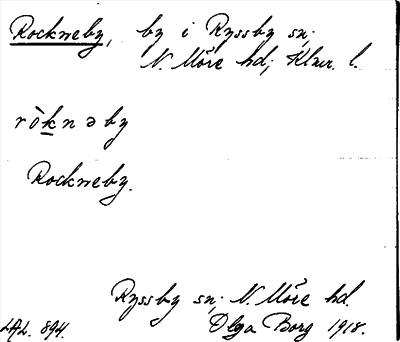 Rockneby, by i Ryssby sn;
N. Möre hd; Klmr. l.
ròknəby
Rockneby.
Ryssby sn; N. Möre hd.
LAL. 894. Olga Borg 1918.